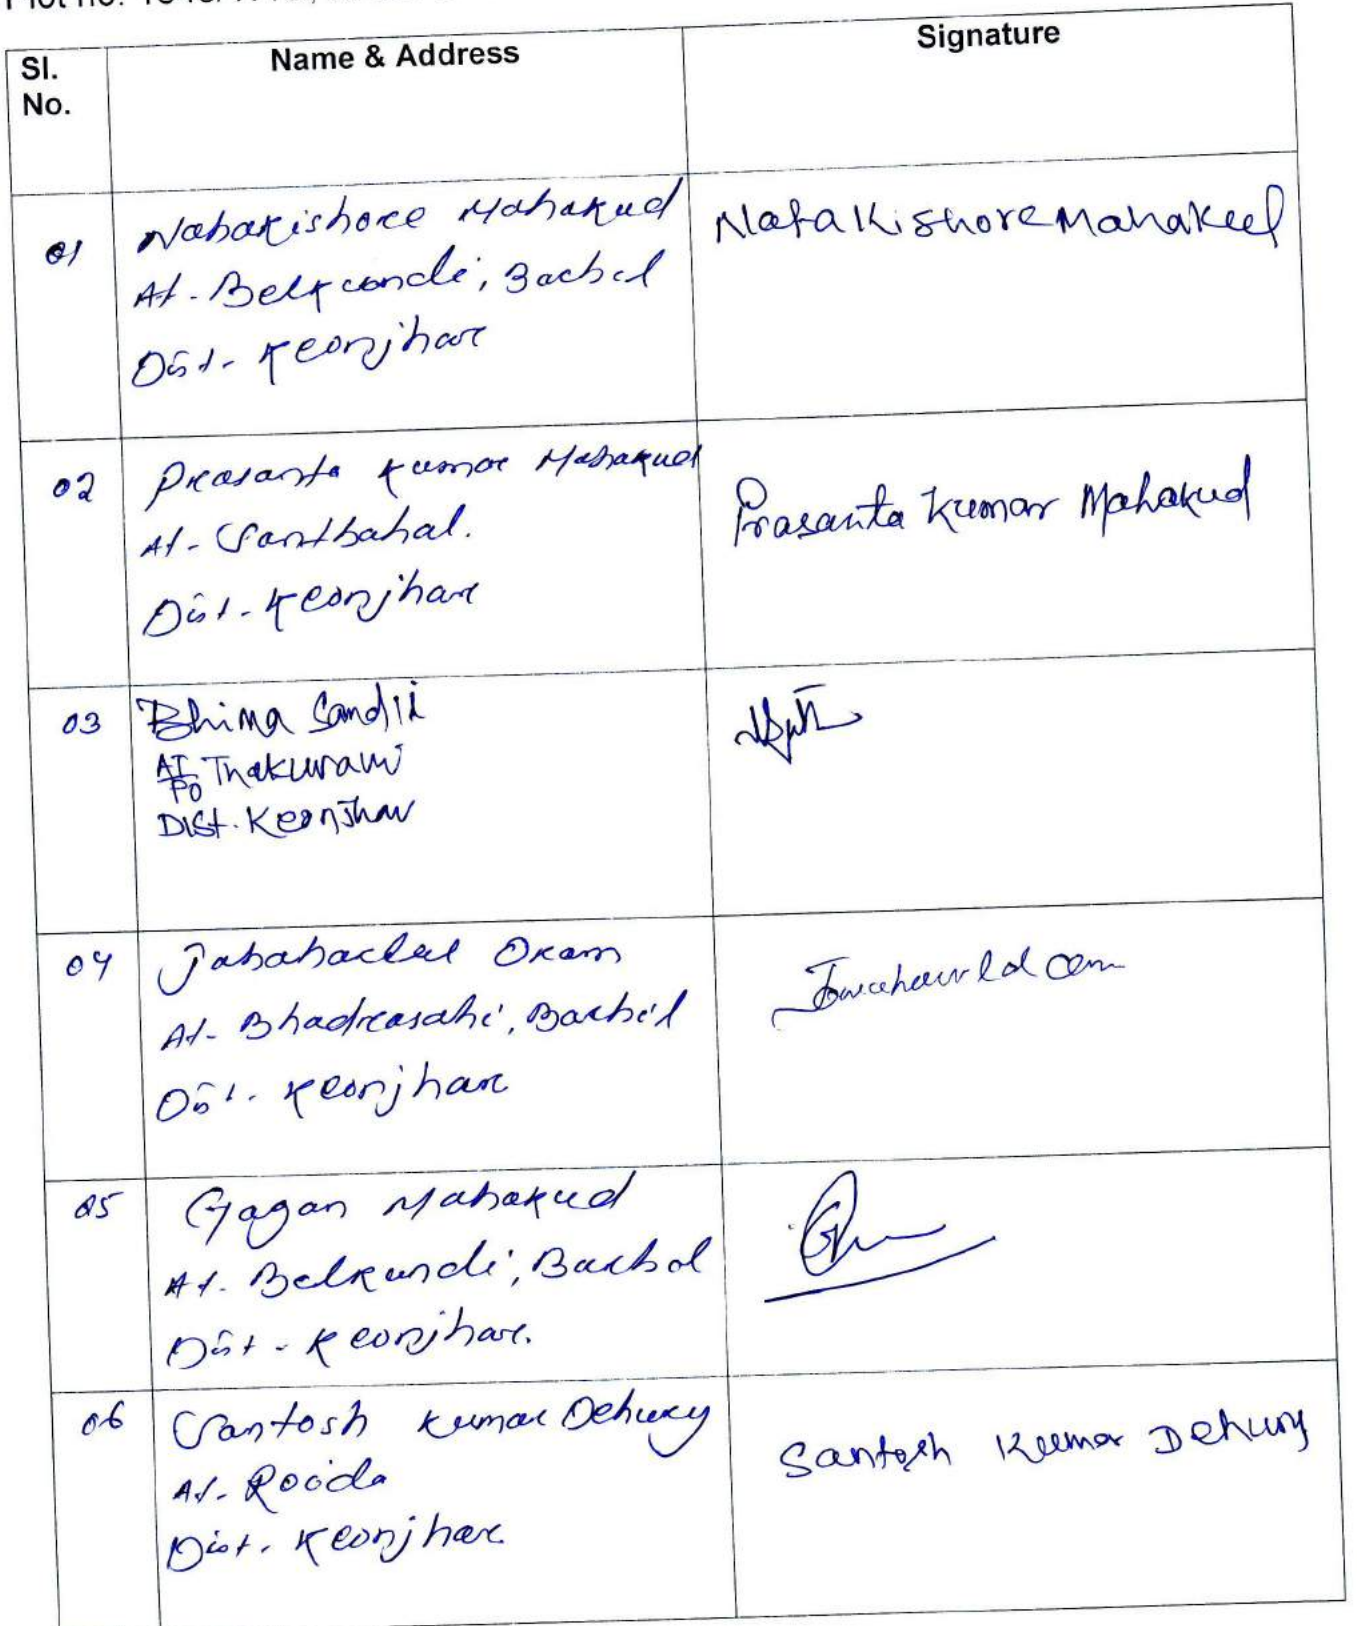 Sl.
No.
Name & Address
Signature
01
Nabakishore Mahakud
At- Belkundi, Barbil
Dist- Keonjhar
Naba Kishore Mahakud
02
Prasanta Kumar Mahakud
At- Santbahal.
Dist- Keonjhar
Prasanta Kumar Mahakud
03
Bhima Sandil
AT
PO Thakurani
Dist. Keonjhar
04
Oram
At- Bhadrasahi, Barbil
Dist- Keonjhar
05
Gagan Mahakud
At- Belkundi, Barbil
Dist- Keonjhar.
06
Santosh Kumar Dehury
At- Rooida
Dist. Keonjhar
Santosh Kumar Dehury